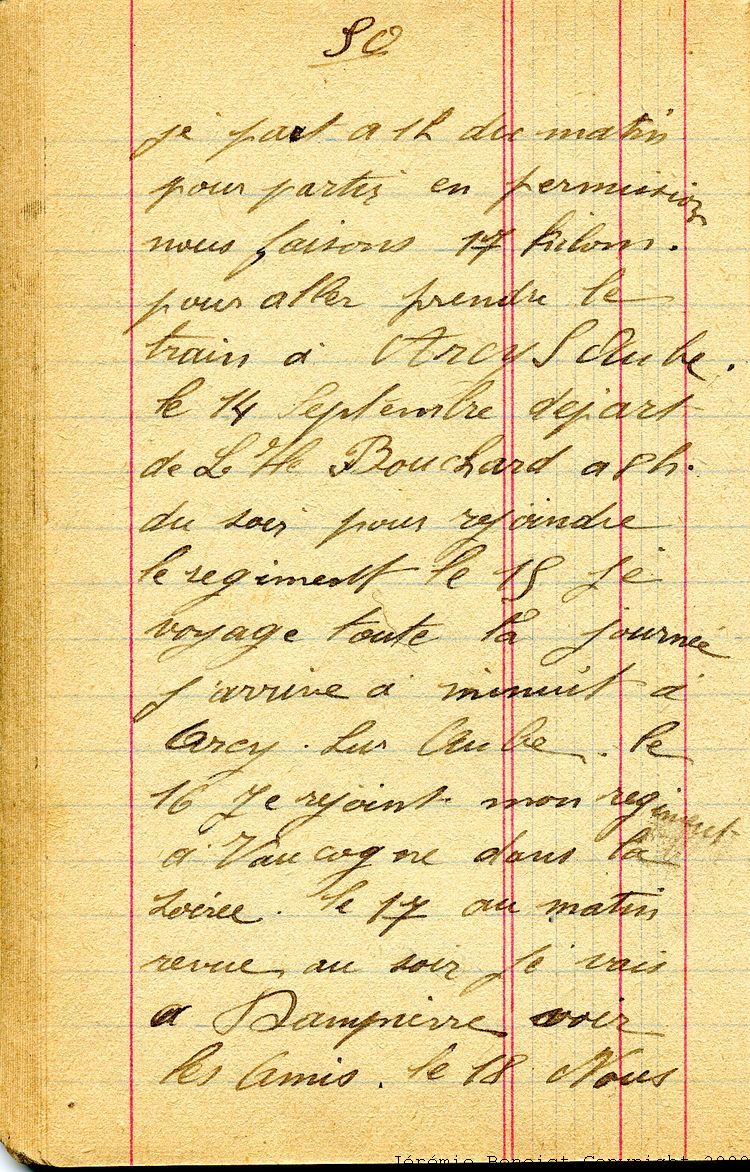 50
je part a 1h du matin
pour partir en permission
nous faisons 17 kilom.
pour aller prendre le
train a Arcy S Aube.
le 14 Septembre depart
de L'Ile Bouchard a 8h.
du soir pour rejoindre
le regiment le 15 je
voyage toute la journée
j'arrive a minuit a
Arcy. Sur Aube. le
16 je rejoint mon regiment
a Vaucogne dans la
soirée. le 17 au matin
revue, au soir je vais
a Dampierre voir
les Amis. le 18 Nous
Jérémie Benoist Copyright